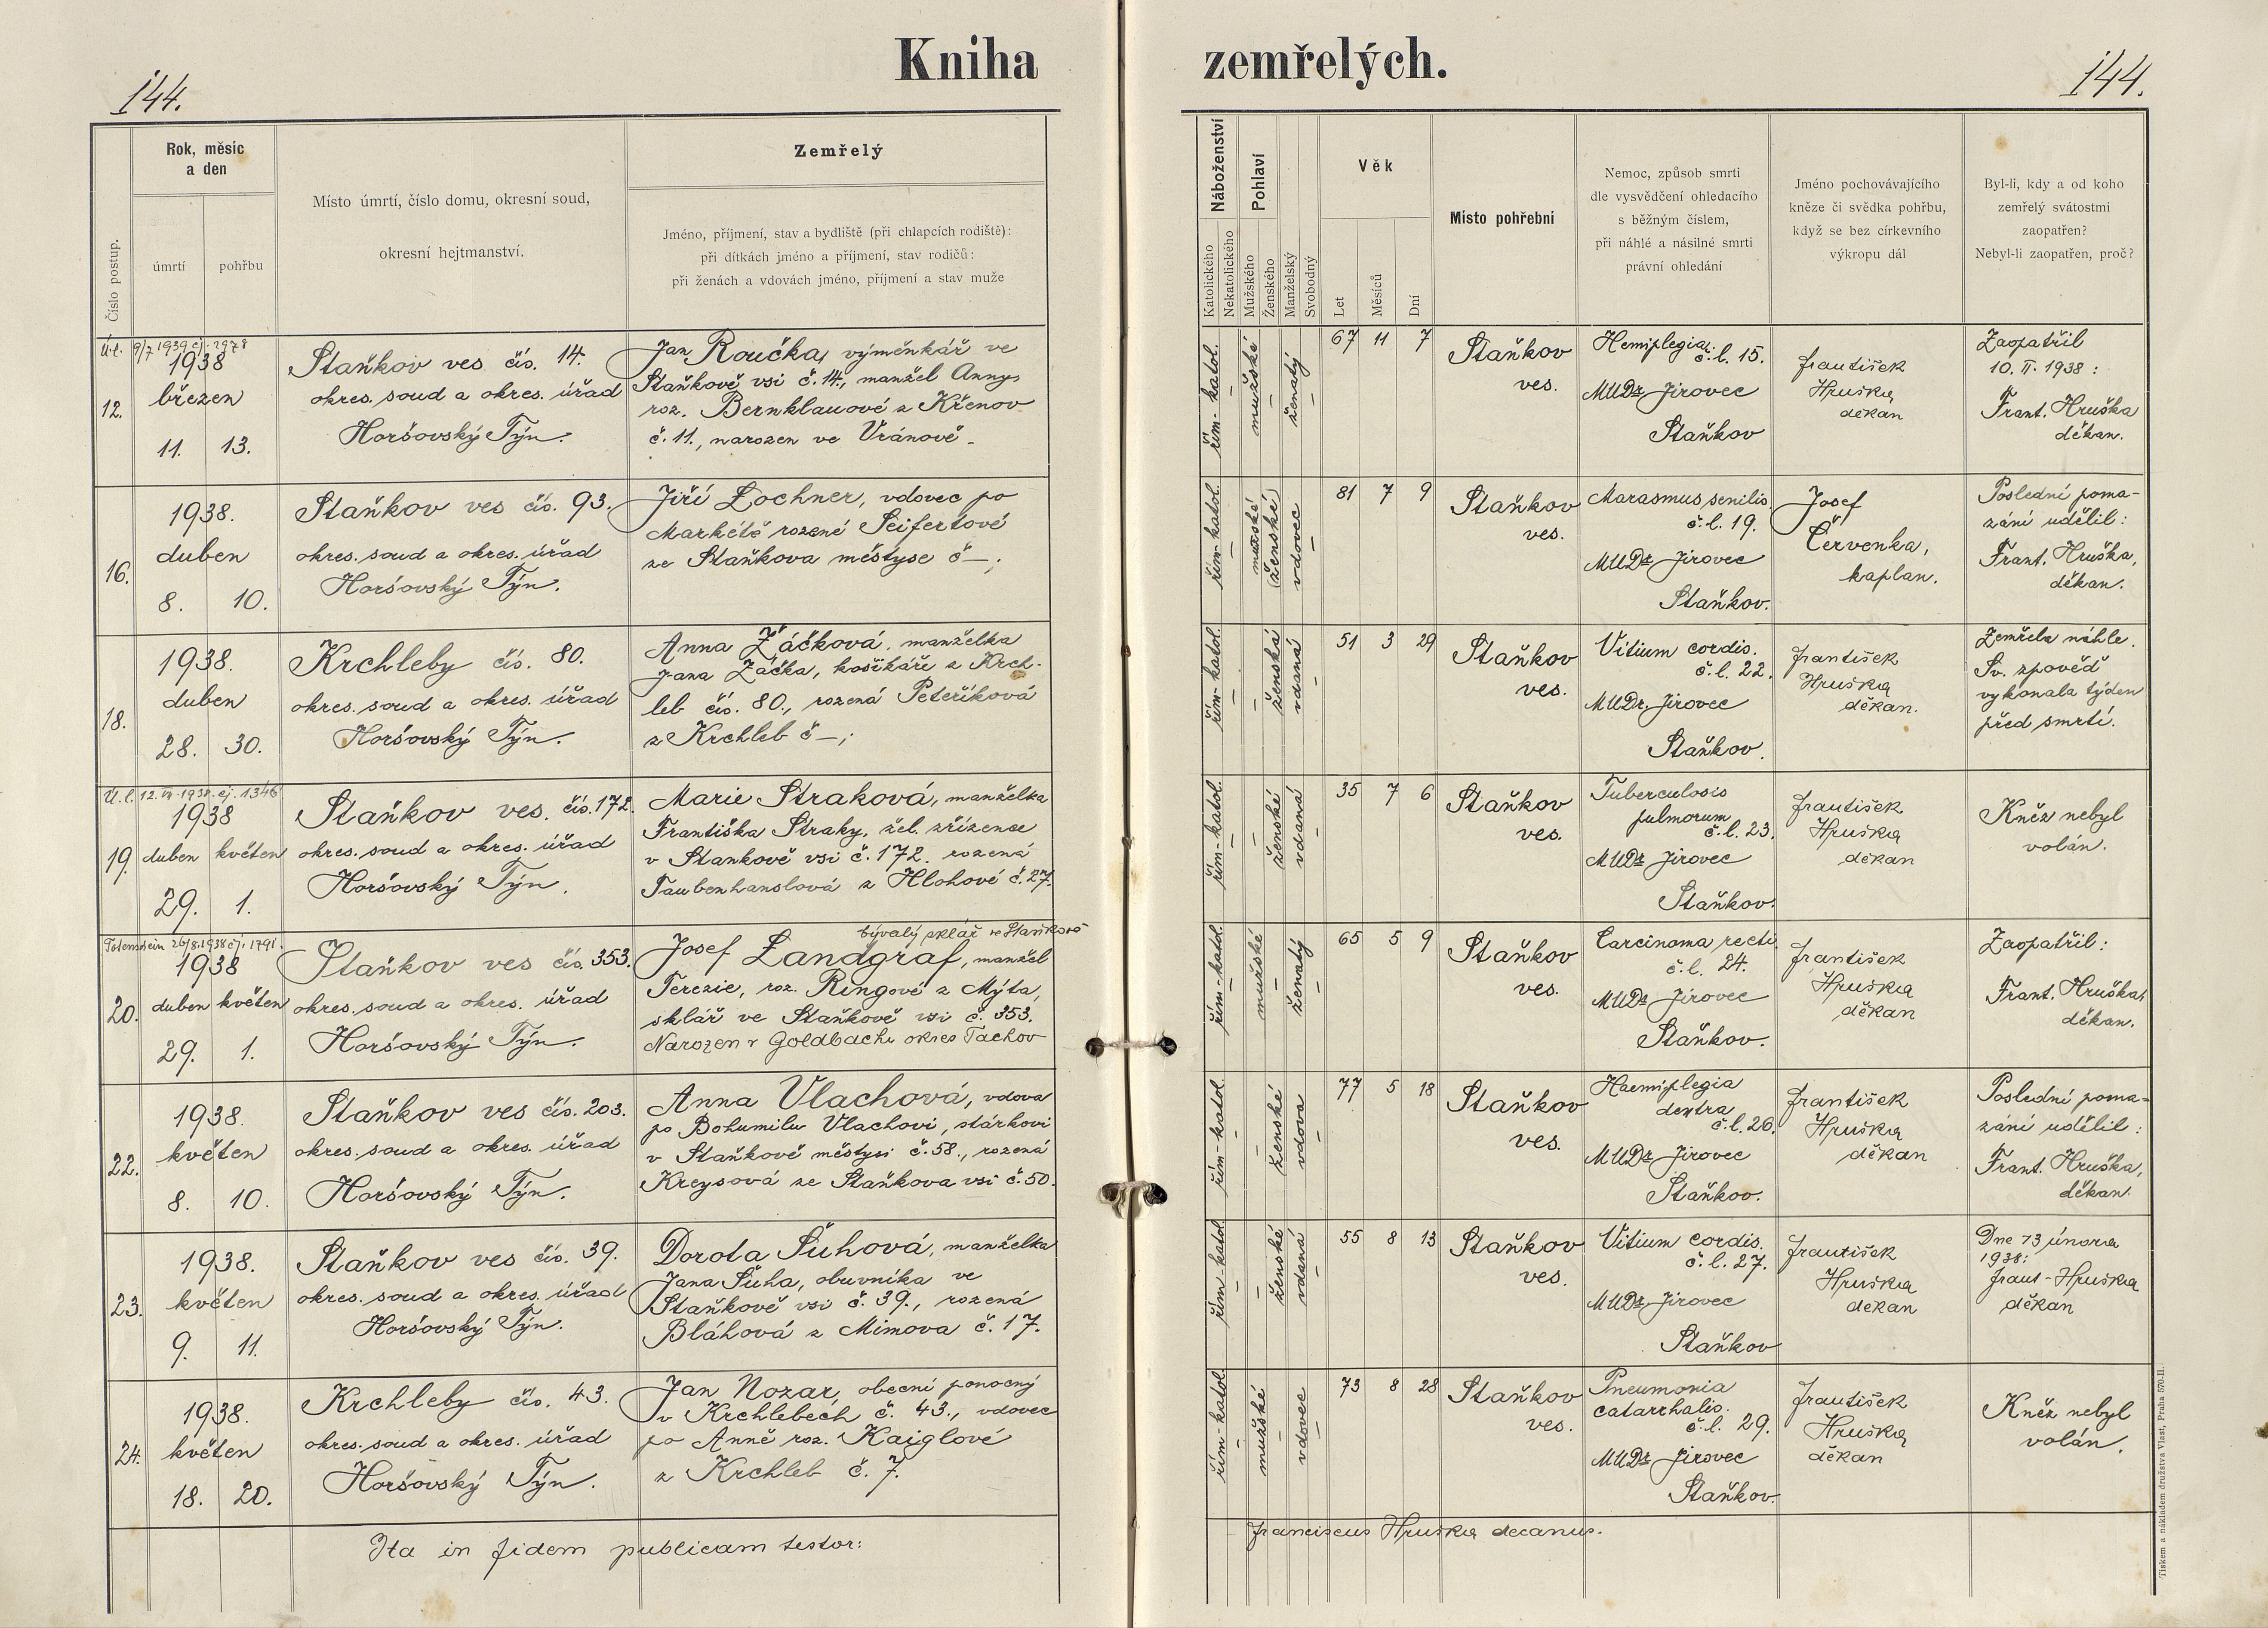 Kniha zemřelých.
144.
144.
Číslo postup.
Rok, měsíc
a den
úmrtí
pohřbu
Místo úmrtí, číslo domu, okresní soud,
okresní hejtmanství.
Zemřelý
Jméno, příjmení, stav a bydliště (při chlapcích rodiště):
při dítkách jméno a příjmení, stav rodičů:
při ženách a vdovách jméno, příjmení a stav muže
Náboženství
Katolického
Nekatolického
Pohlaví
Mužského
Ženského
Manželský
Svobodný
Věk
Let
Měsíců
Dní
Místo pohřební
Nemoc, způsob smrti
dle vysvědčení ohledacího
s běžným číslem,
při náhlé a násilné smrti
právní ohledání
Jméno pochovávajícího
kněze či svědka pohřbu,
když se bez církevního
výkropu dál
Byl-li, kdy a od koho
zemřelý svátostmi
zaopatřen?
Nebyl-li zaopatřen, proč?
Ú.l. 9/7 1939 čj. 2978
12.
1938
březen
11. 13.
Staňkov ves čís. 14.
okres. soud a okres. úřad
Horšovský Týn.
Jan Roučka, výměnkář ve
Staňkově vsi č. 14., manžel Anny,
roz. Bernklauové z Křenov
č. 11., narozen ve Vránově.
řím-katol.
mužské
ženatý
67 11 7
Staňkov
ves.
Hemiplegia.
č.l. 15.
MUDr Jirovec
Staňkov
František
Hruška
děkan
Zaopatřil
10. II. 1938:
Frant. Hruška
děkan.
16.
1938.
duben
8. 10.
Staňkov ves čís. 93.
okres. soud a okres. úřad
Horšovský Týn.
Jiří Lochner, vdovec po
Markétě rozené Seifertové
ze Staňkova městyse č —;
řím-katol.
mužské
(ženské)
vdovec
81 7 9
Staňkov
ves.
Marasmus senilis.
č.l. 19.
MUDr Jirovec
Staňkov.
Josef
Červenka,
kaplan.
Poslední poma-
zání udělil:
Frant. Hruška,
děkan.
18.
1938.
duben
28. 30.
Krchleby čís. 80.
okres. soud a okres. úřad
Horšovský Týn.
Anna Žáčková, manželka
Jana Žáčka, košíkáře z Krch-
leb čís. 80., rozená Peteříková
z Krchleb č —;
řím-katol.
ženská
vdaná
51 3 29
Staňkov
ves.
Vitium cordis.
č.l. 22.
MUDr. Jirovec
Staňkov.
František
Hruška
děkan.
Zemřela náhle.
Sv. zpověď
vykonala týden
před smrtí.
Ú.l. 12. VII. 1938. čj. 1346
19.
1938
duben květen
29. 1.
Staňkov ves. čís. 172.
okres. soud a okres. úřad
Horšovský Týn.
Marie Straková, manželka
Františka Straky, žel. zřízence
v Stankově vsi č. 172. rozená
Taubenhanslová z Hlohové č. 27.
řím-katol.
ženské
vdaná
35 7 6
Staňkov
ves.
Tuberculosis
pulmorum
č.l. 23.
MUDr Jirovec
Staňkov.
František
Hruška
děkan
Kněz nebyl
volán.
Totenschein 26/8. 1938 čj. 1791.
20.
1938
duben květen
29. 1.
Staňkov ves čís. 353.
okres. soud a okres. úřad
Horšovský Týn.
bývalý sklář ve Staňkově
Josef Landgraf, manžel
Terezie, roz. Ringové z Mýta,
sklář ve Staňkově vsi č. 353.
Narozen v Goldbachu okres Tachov
řím-katol.
mužské
ženatý
65 5 9
Staňkov
ves.
Carcinoma recti.
č.l. 24.
MUDr Jirovec
Staňkov.
František
Hruška
děkan
Zaopatřil:
Frant. Hruška,
děkan.
22.
1938.
květen
8. 10.
Staňkov ves čís. 203.
okres. soud a okres. úřad
Horšovský Týn.
Anna Vlachová, vdova
po Bohumilu Vlachovi, stárkovi
v Staňkově městysi č. 58., rozená
Kreysová ze Staňkova vsi č. 50.
řím-katol.
ženské
vdova
77 5 18
Staňkov
ves.
Haemiplegia
dextra
č.l. 26.
MUDr Jirovec
Staňkov.
František
Hruška
děkan
Poslední poma-
zání udělil:
Frant. Hruška,
děkan.
23.
1938.
květen
9. 11.
Staňkov ves čís. 39.
okres. soud a okres. úřad
Horšovský Týn.
Dorota Šuhová, manželka
Jana Šuha, obuvníka ve
Staňkově vsi č. 39., rozená
Bláhová z Mimova č. 17.
řím-katol.
ženské
vdaná
55 8 13
Staňkov
ves.
Vitium cordis.
č.l. 27.
MUDr Jirovec
Staňkov
František
Hruška
děkan
Dne 13 února
1938:
Frant-Hruška
děkan
24.
1938.
květen
18. 20.
Krchleby čís. 43.
okres. soud a okres. úřad
Horšovský Týn.
Jan Nozar, obecní ponocný
v Krchlebech č. 43., vdovec
po Anně roz. Kaiglové
z Krchleb č. 7.
řím-katol.
mužské
vdovec
73 8 28
Staňkov
ves.
Pneumonia
catarrhalis.
č.l. 29.
MUDr Jirovec
Staňkov.
František
Hruška
děkan
Kněz nebyl
volán.
Ita in fidem publicam testor:
Franciscus Hruška decanus.
Tiskem a nákladem družstva Vlast, Praha 570-II.